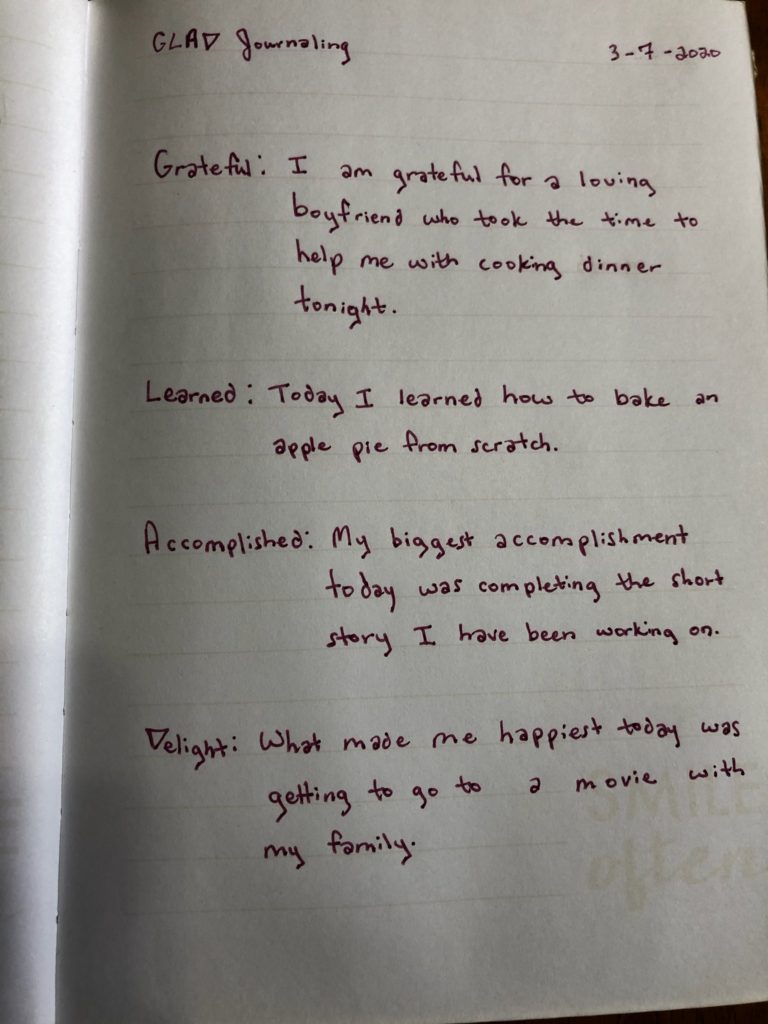 GLAD Journaling
3-7-2020
Grateful: I am grateful for a loving
boyfriend who took the time to
help me with cooking dinner
tonight.
Learned: Today I learned how to bake an
apple pie from scratch.
Accomplished: My biggest accomplishment
today was completing the short
story I have been working on.
Delight: What made me happiest today was
getting to go to a movie with
my family.
SMILE
often